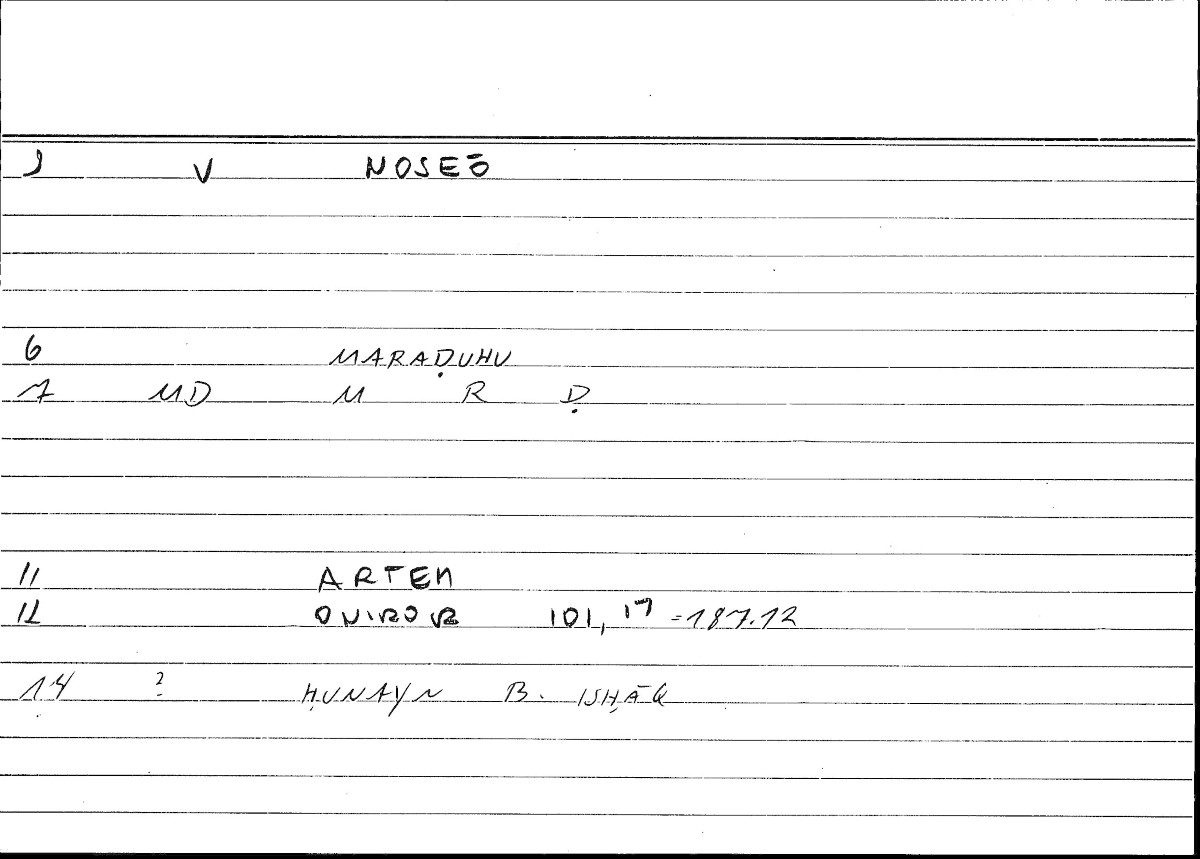 J V NOSEŌ
6 MARAḌUHU
7 MD M R Ḍ
11 ARTEM
12 ONIROCR 101, 17 =187.12
14 2 ḤUNAYN B. ISḤĀQ